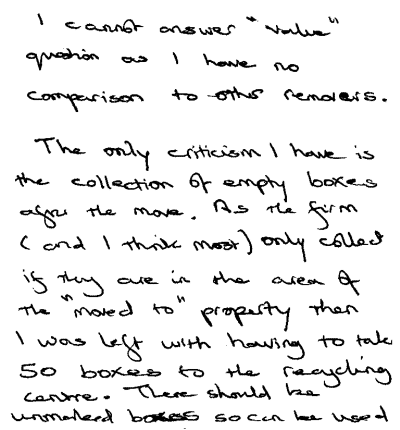 I cannot answer "value"
question as I have no
comparison to other removers.
The only criticism I have is
the collection of empty boxes
after the move. As the firm
(and I think most) only collect
if they are in the area of
the "moved to" property then
I was left with having to take
50 boxes to the recycling
centre. There should be
unmarked boxes so can be used